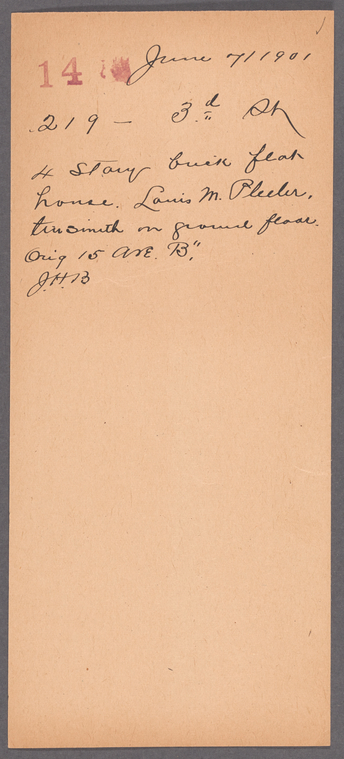 14 June 7/1901
219 - 3.d St
4 Story brick flat
house. Louis M. Pleeler,
tinsmith on ground floor.
Orig 15 AVE. B",
J.H.B